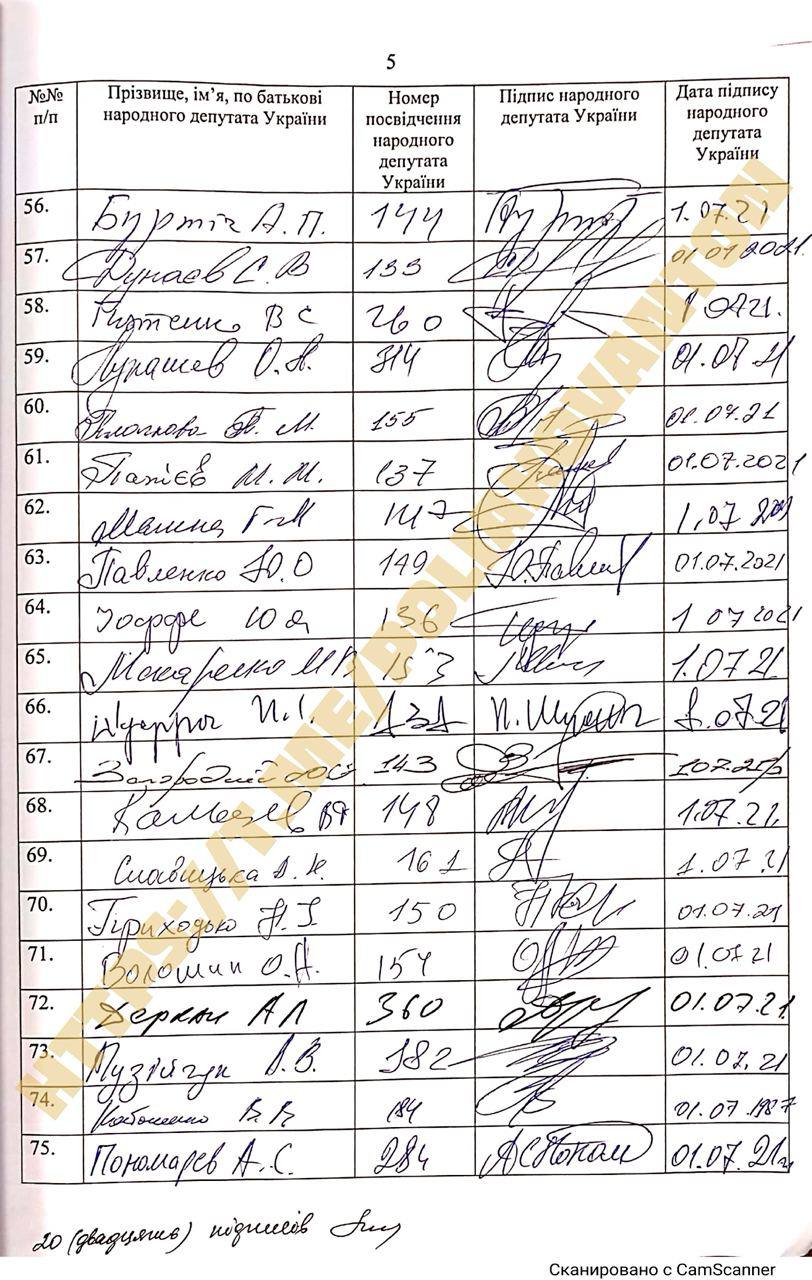 5
№№ п/п Прізвище, ім’я, по батькові народного депутата України Номер посвідчення народного депутата України Підпис народного депутата України Дата підпису народного депутата України
56. Бурміч А. П. 144 1.07.21
57. Дунаєв С. В 133 01 07 2021
58. В С 260 1 0721.
59. Лукашев О. А. 314 01.07 21
60. Плачкова Т. М. 155 01.07.21
61. Папієв М. М. 137 01.07.2021
62. Мамка Г М 147 1.07 2021
63. Павленко Ю. О 149 Ю.Павленко 01.07.2021
64. Іоффе Ю Я 136 1 07 2021
65. Макаренко М В 153 1.07 21
66. П. 131 П. 1.07.21
67. Загородній Ю 143 1 07.21
68. В 148 1.07.21.
69. Славицька А. К. 161 1.07 21
70. Приходько Н. І. 150 01.07.21
71. Волошин О. А. 154 01.07 21
72. Деркач А Л 360 01.07.21
73. Пузійчук А. В. 382 01.07.21
74. В. В 184 01.07 1987
75. Пономарев А. С. 284 01.07.21
20 (двадцять) підписів
HTTPS://T.ME/POLIAKOVANTON
Сканировано с CamScanner